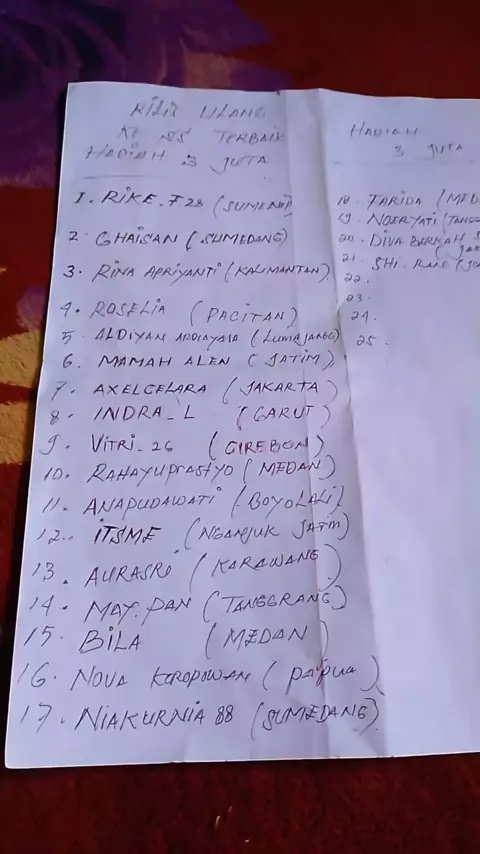 RILIS ULANG
KE 185 TERBAIK
HADIAH 3 JUTA
1. RIKE.F28 (SUMENEP)
2. GHAISAN (SUMEDANG)
3. RINA APRIYANTI (KALIMANTAN)
4. ROSELIA (PACITAN)
5. ALDIYAN (LUMAJANG)
6. MAMAH ALEN (JATIM)
7. AXELCELARA (JAKARTA)
8. INDRA_L (GARUT)
9. VITRI_26 (CIREBON)
10. RAHAYUPRASTYO (MEDAN)
11. ANAPUDAWATI (BOYOLALI)
12. ITSME (NGANJUK JATIM)
13. AURASRI (KARAWANG)
14. MAY.PAN (TANGGRANG)
15. BILA (MEDAN)
16. NOVA KOROPOWAN (PAPUA)
17. NIAKURNIA 88 (SUMEDANG)
HADIAH
3 JUTA
18. FARIDA (MED
19. NOERYATI (TANGG
20. DIVA BARKAH
21. SHI. RANS
22.
23.
24.
25.